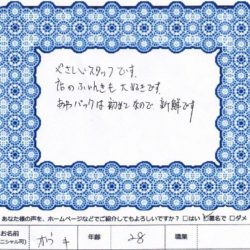 やさしいスタッフです。
店のふんいきも大好きです。
あわパックは初めてなので新鮮です
あなた様の声を、ホームページなどでご紹介してもよろしいですか? □はい □匿名で □ダメ
お名前
ニシャル可)
年齢
28
職業